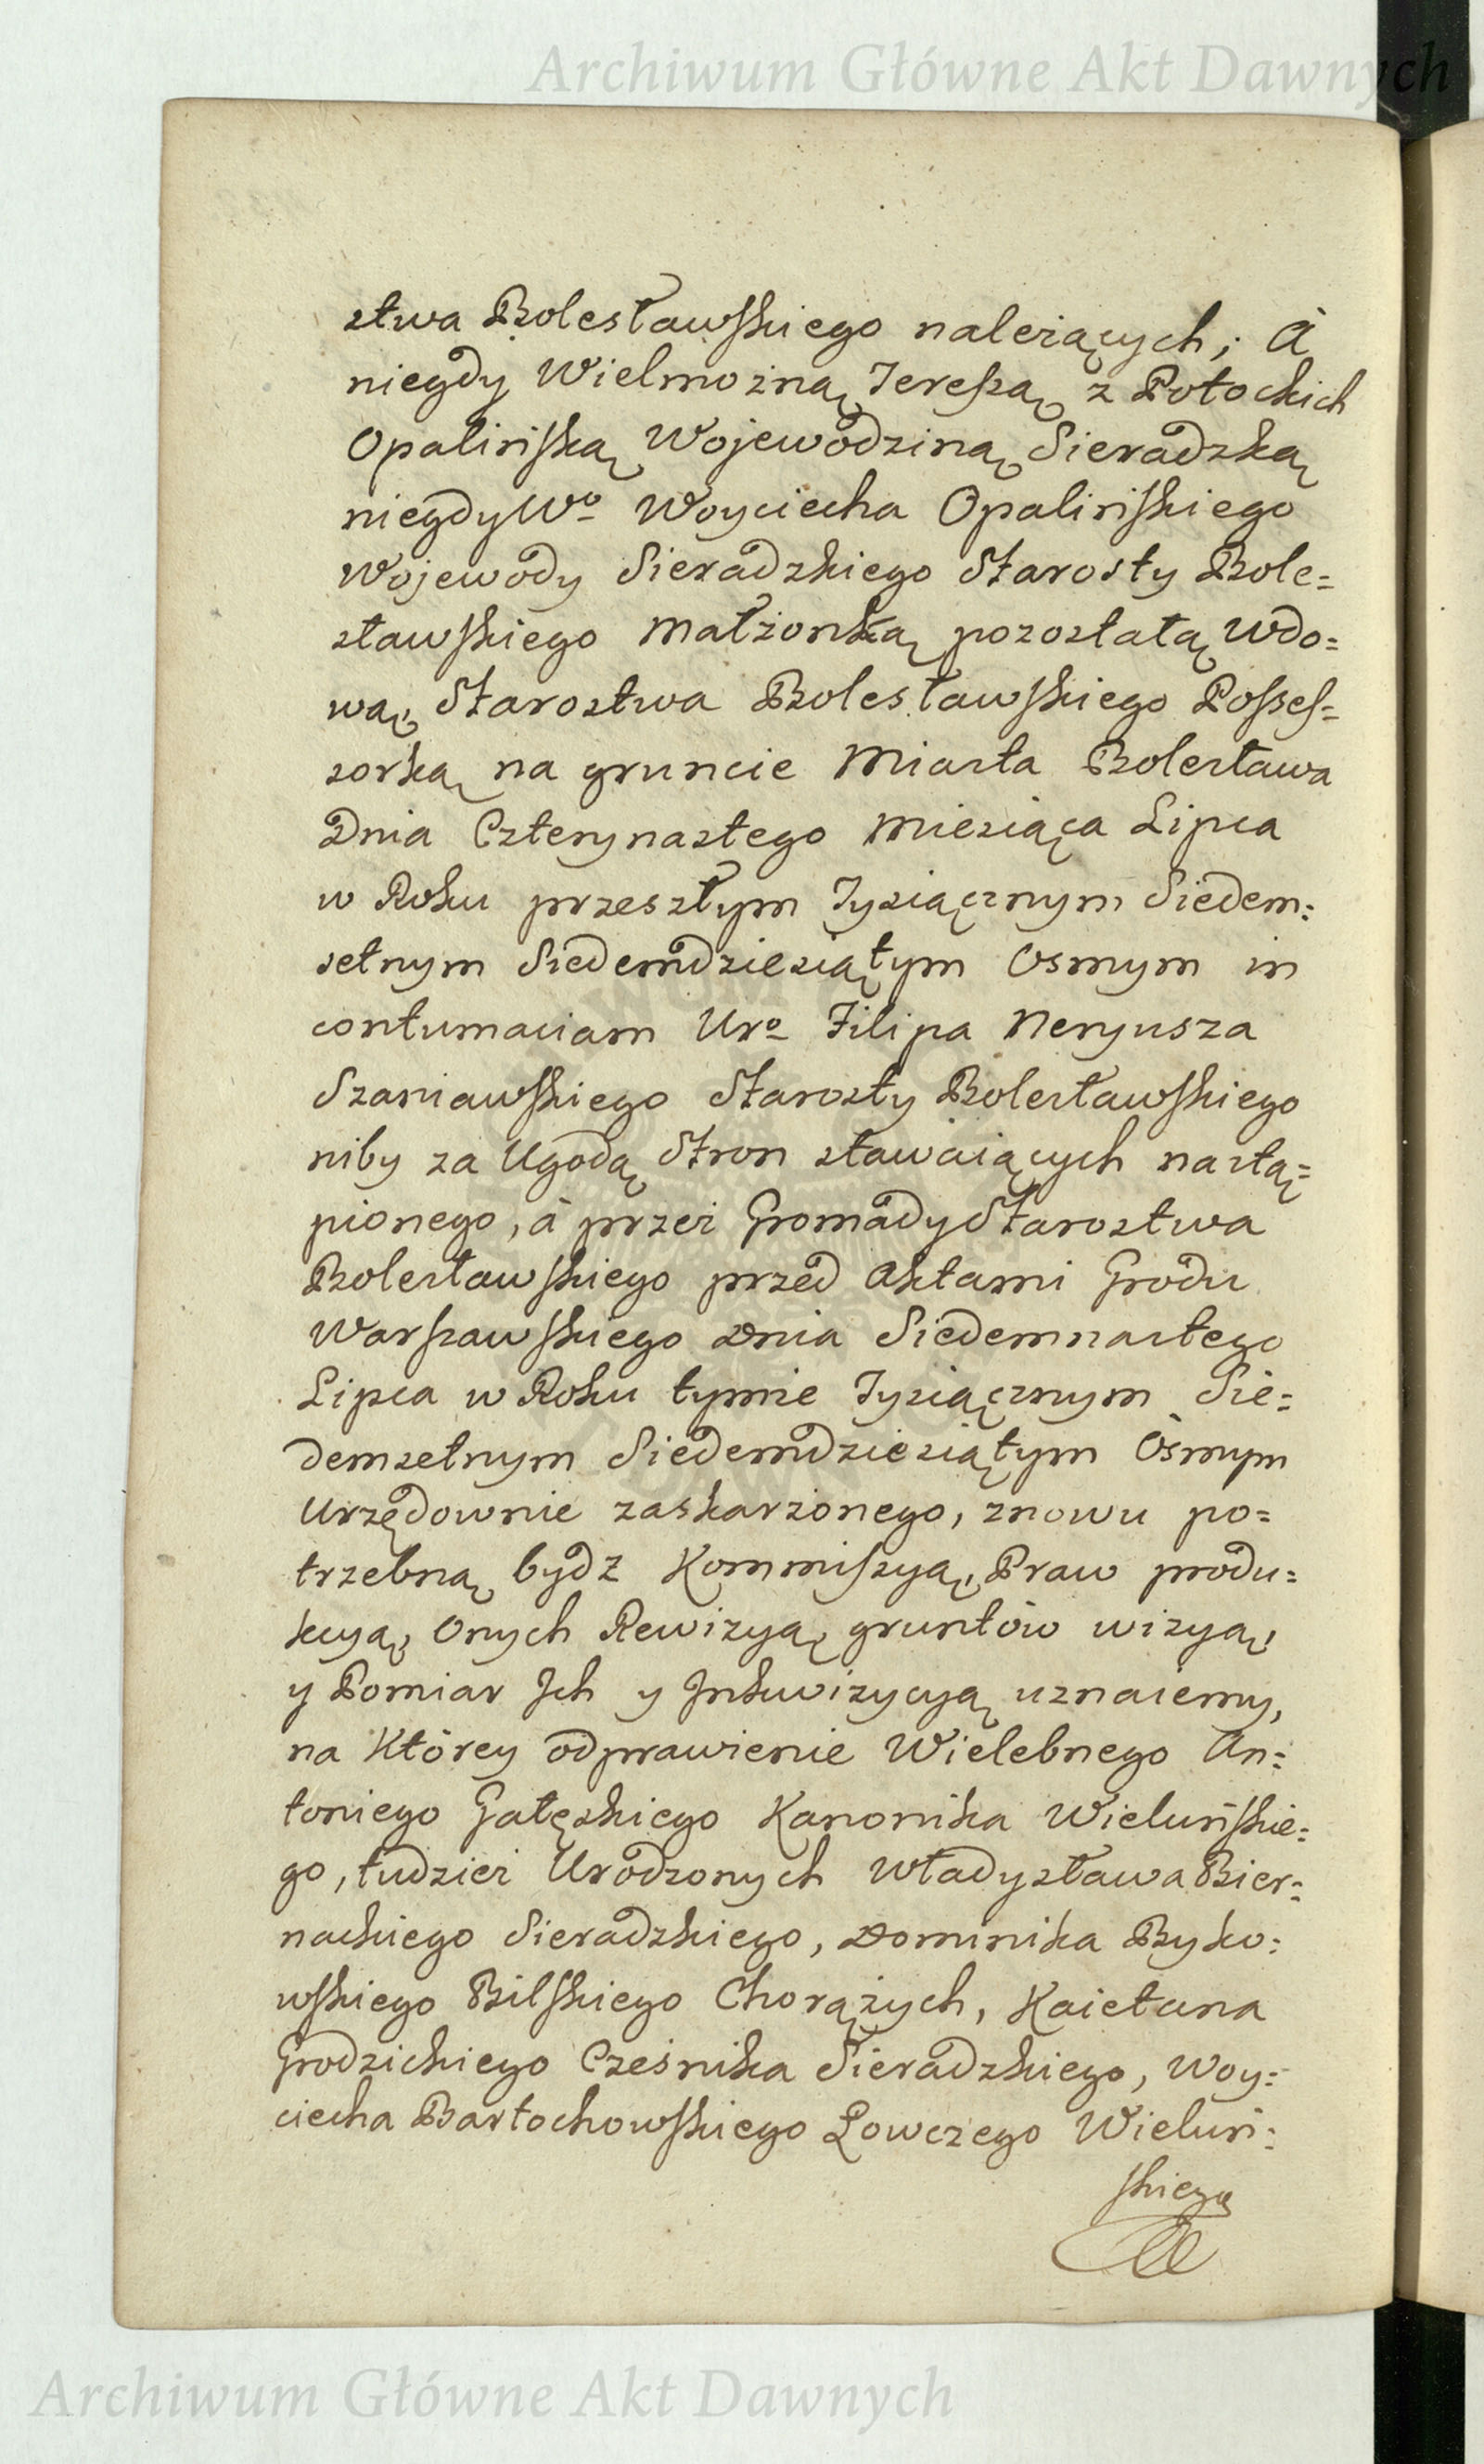 Archiwum Główne Akt Dawnych
stwa Bolesławskiego należących; à
niegdy Wielmożną Tereszą z Potockich
Opalińską Wojewodziną Sieradzką
niegdy Wo Woyciecha Opalińskiego
Wojewody Sieradzkiego Starosty Bole=
sławskiego Małżonką pozostałą Wdo=
wą, Starostwa Bolesławskiego Posses=
sorką na gruncie Miasta Bolesława
Dnia Czterynastego Miesiąca Lipca
w Roku przeszłym Tysiącznym Siedem=
setnym Siedemdziesiątym Osmym in
contumaciam Uro Filipa Neryusza
Szaniawskiego Starosty Bolesławskiego
niby za Ugodą Stron stawaiących nastą=
pionego, à przez Gromady Starostwa
Bolesławskiego przed Aktami Grodu
Warszawskiego Dnia Siedemnastego
Lipca w Roku tymże Tysiącznym Sie=
demsetnym Siedemdziesiątym Osmym
Urzędownie zaskarżonego, znowu po=
trzebną bydz Kommissyą, Praw produ=
kcyą, Onych Rewizyą, gruntów wizyą,
y Pomiar Jch y Jnkwizycyą uznaiemy,
na Którey odprawienie Wielebnego An=
toniego Gałęskiego Kanonika Wieluńskie=
go, tudzież Urodzonych Władysława Bier=
nackiego Sieradzkiego, Dominika Byko=
wskiego Bilskiego Chorążych, Kaietana
Grodzickiego Cześnika Sieradzkiego, Woy=
ciecha Bartochowskiego Łowczego Wieluń=
skiego
Archiwum Główne Akt Dawnych